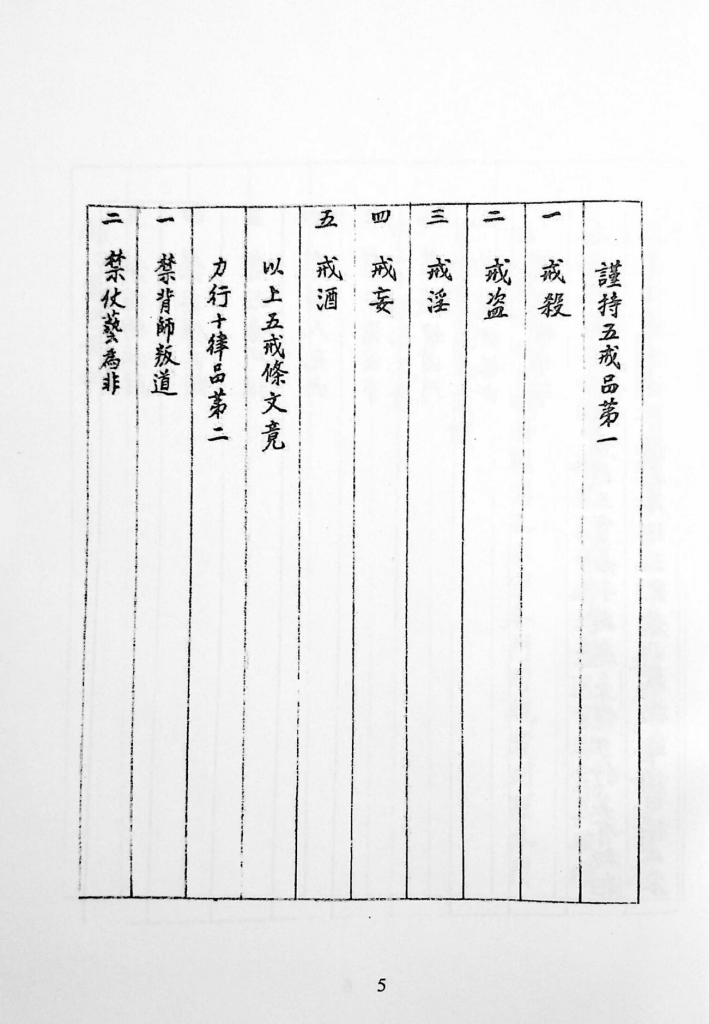 謹持五戒品第一
一 戒殺
二 戒盗
三 戒淫
四 戒妄
五 戒酒
以上五戒條文竟
力行十律品第二
一 禁背師叛道
二 禁仗藝為非
5